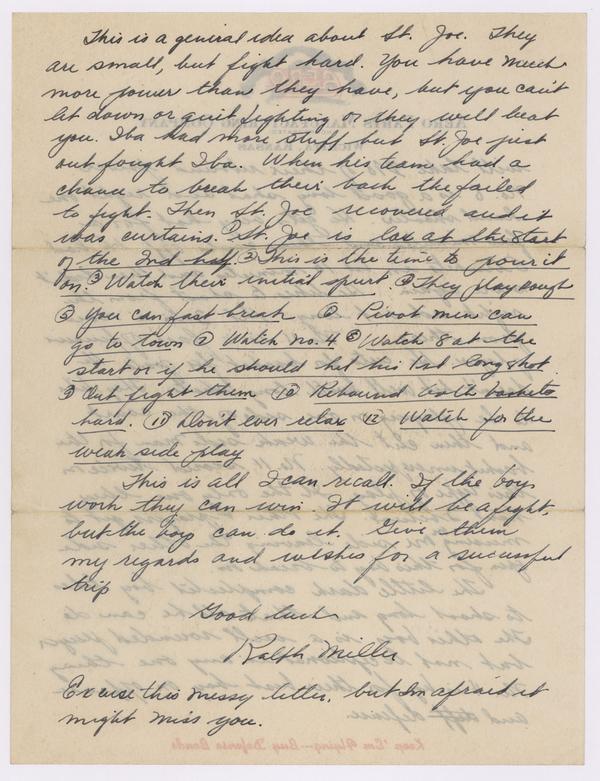 This is a general idea about St. Joe. They
are small, but fight hard. You have much
more power than they have, but you can't
let down or quit fighting or they will beat
you. Iba had more stuff but St. Joe just
out fought Iba. When his team had a
chance to break their back the failed
to fight. Then St. Joe recovered and it
was curtains. ① St. Joe is lax at the start
of the 2nd half. ② This is the time to pour it
on. ③ Watch their initial spurt. ④ They play rough
⑤ You can fast break ⑥ Pivot men can
go to town ⑦ Watch No. 4 ⑧ Watch 8 at the
start or if he should hit his 1st long shot.
⑨ Out fight them ⑩ Rebound both baskets
hard. ⑪ Don't ever relax ⑫ Watch for the
weak side play
This is all I can recall. If the boys
work they can win. It will be a fight,
but the boys can do it. Give them
my regards and wishes for a successful
trip
Good luck
Ralph Miller
Excuse this messy letter, but I'm afraid it
might miss you.
Keep 'Em Flying—Buy Defense Bonds